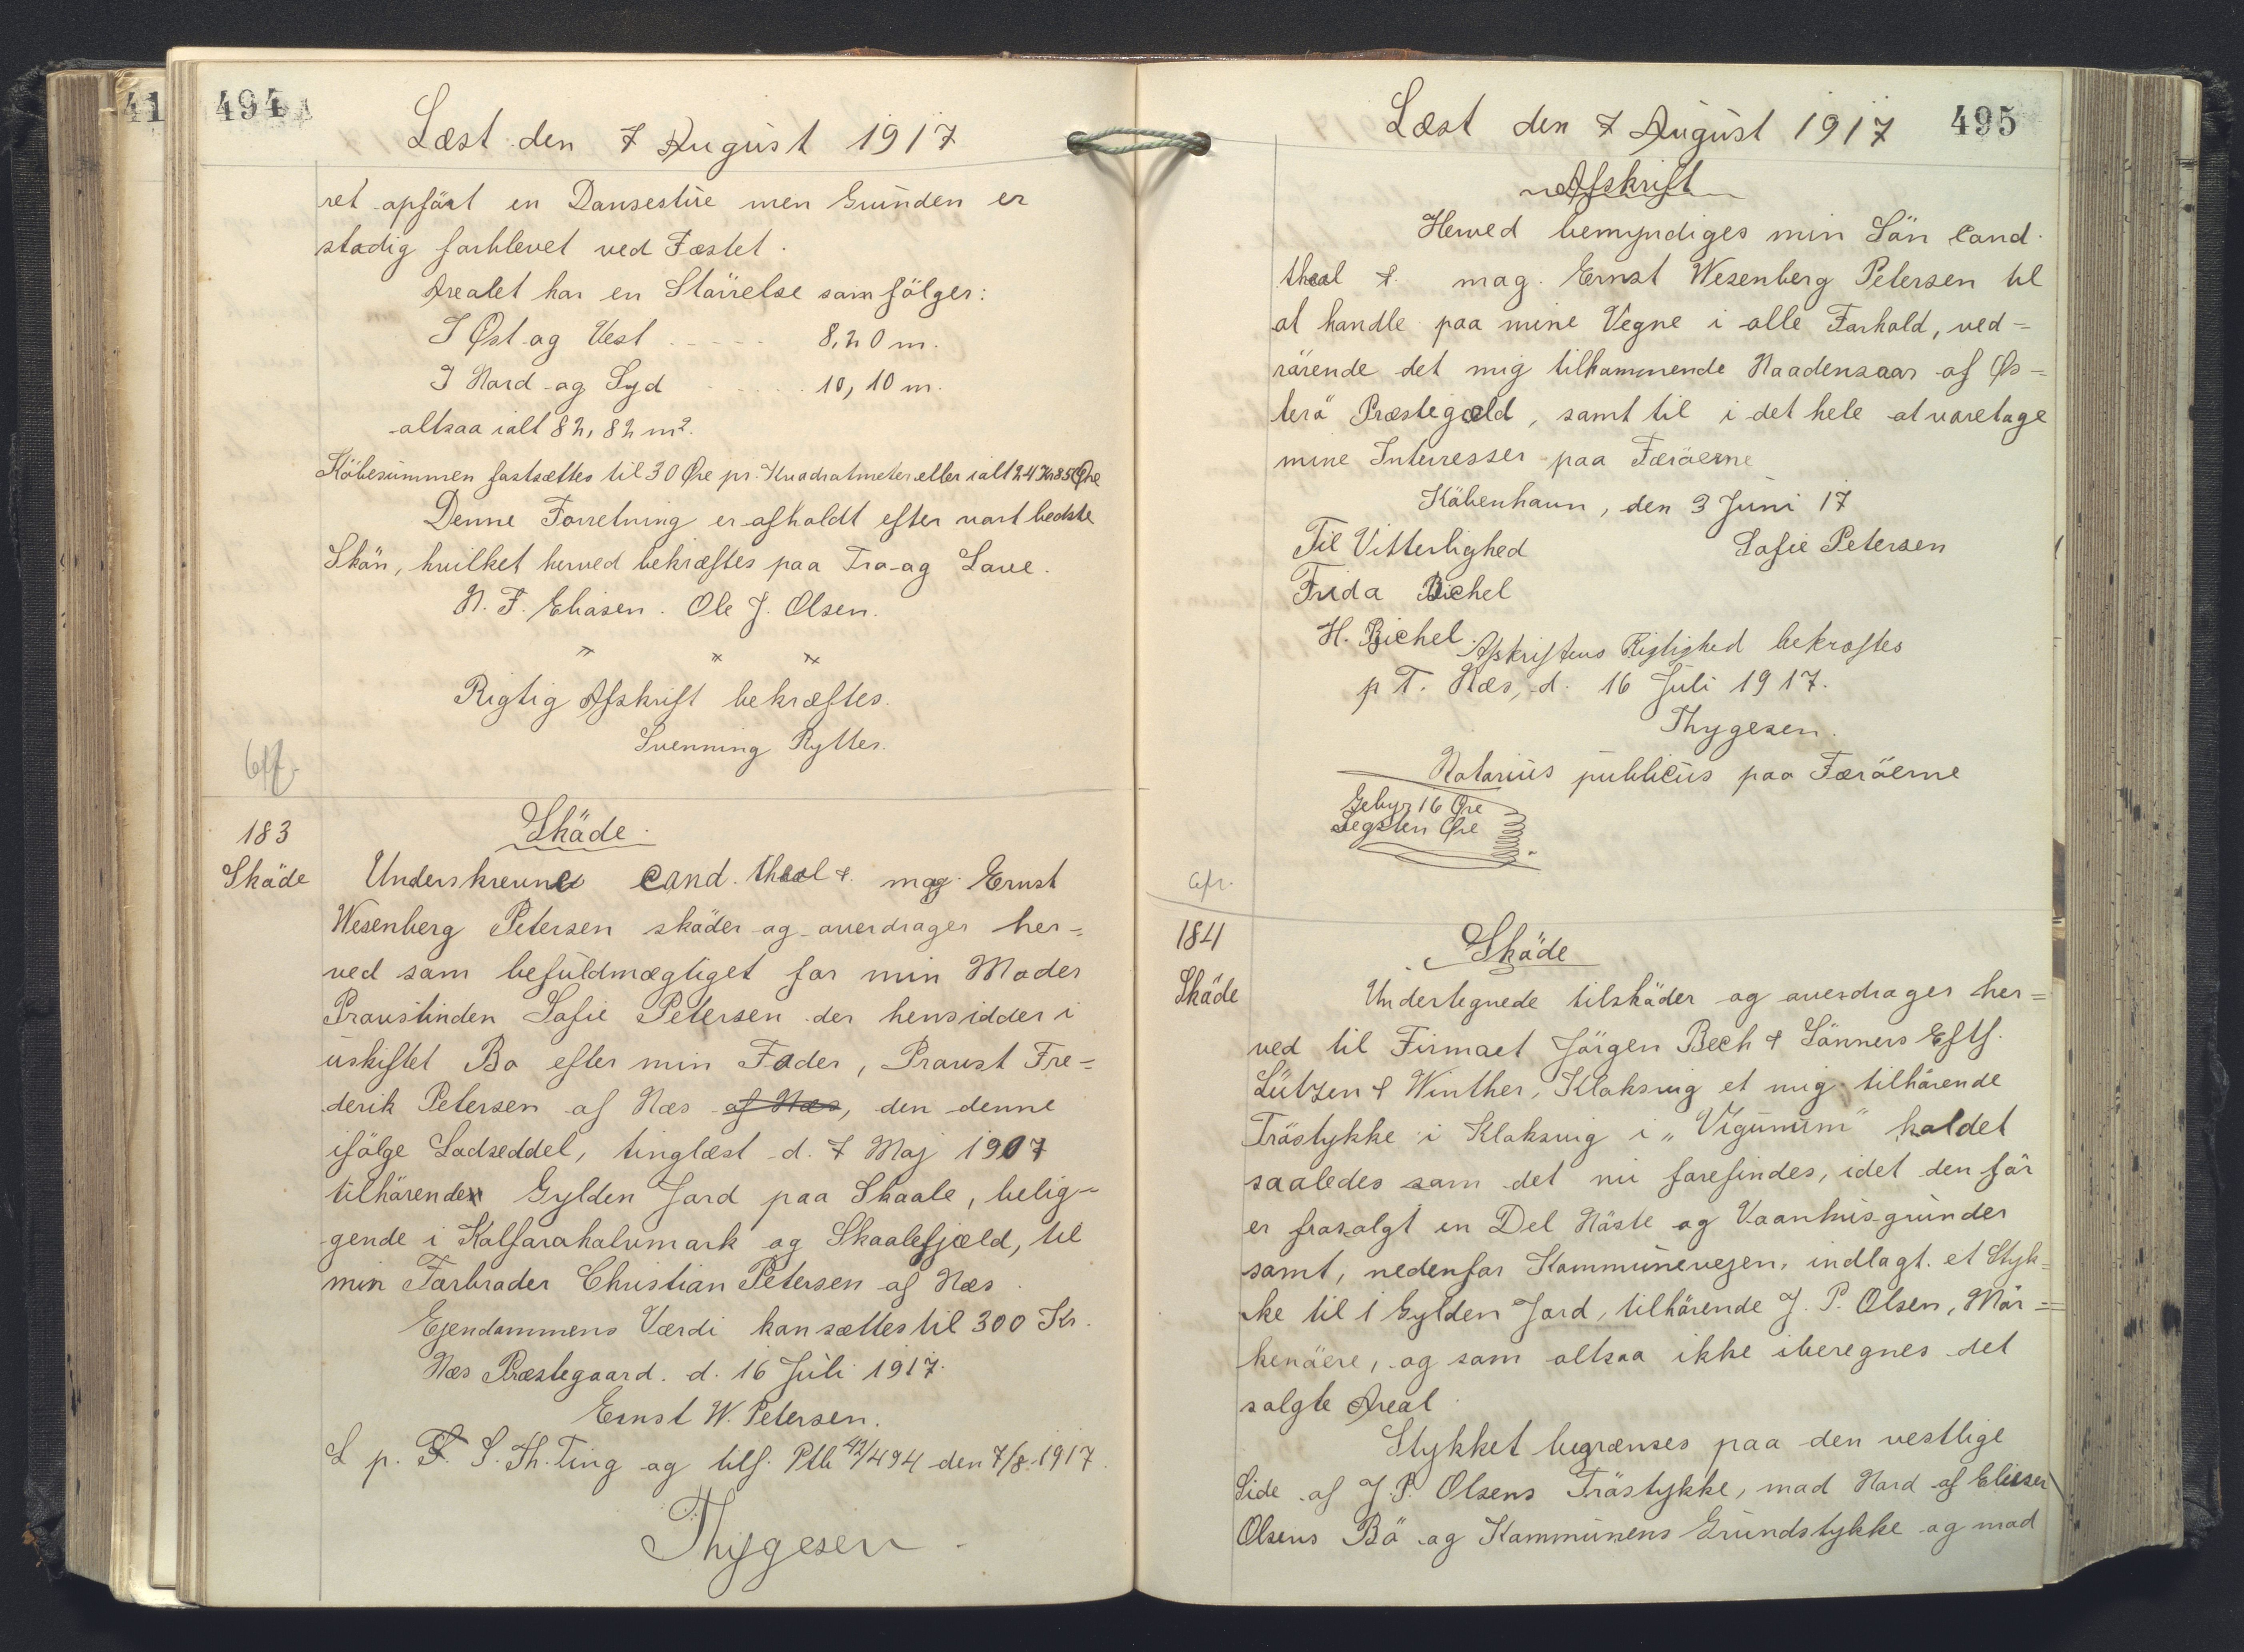 41
494
Læst den 7 August 1917
ret opført en Dansestue men Grunden er
stadig forblevet ved Fæstet.
Arealet har en Störrelse som fölger:
I Øst og Vest ..... 8,20 m.
I Nord og Syd ..... 10,10 m.
altsaa ialt 82,82 m².
Köbesummen fastsættes til 30 Øre pr. Kvadratmeter eller ialt 24 Kr 85 Øre
Denne Forretning er afholdt efter vort bedste
Skön, hvilket herved bekræftes paa Tro og Love.
N. F. Eliasen. Ole J. Olsen.
" " "
Rigtig Afskrift bekræftes.
Svenning Rytter.
183
Sköde
Sköde.
Underskrevne cand. theol & mag. Ernst
Wesenberg Petersen sköder og overdrager her=
ved som befuldmægtiget for min Moder
Provstinden Sofie Petersen der hensidder i
uskiftet Bo efter min Fader, Provst Fre=
derik Petersen af Næs af Næs, den denne
ifölge Lodseddel, tinglæst d. 7 Maj 1907
tilhörende Gylden Jord paa Skaale, belig=
gende i Kolfarahalvmark og Skaalefjæld, til
min Farbroder Christian Petersen af Næs.
Ejendommens Værdi kan sættes til 300 Kr.
Næs Præstegaard. d. 16 Juli 1917.
Ernst W. Petersen.
L p. F. S. Th. Ting og tilf. Ptb 42/494 den 7/8 1917.
Thygesen
495
Læst den 7 August 1917
Afskrift
Herved bemyndiges min Sön cand.
theol & mag. Ernst Wesenberg Petersen til
at handle paa mine Vegne i alle Forhold, ved=
rörende det mig tilkommende Naadensaar af Øs=
terö Præstegæld, samt til i det hele at varetage
mine Interresser paa Færöerne
Köbenhavn, den 3 Juni 17
Til Vitterlighed Sofie Petersen
Frida Bichel
H. Bichel.
Afskriftens Rigtighed bekræftes
p T. Næs, d. 16 Juli 1917.
Thygesen.
Notarius publicus paa Færöerne
Gebyr 16 Øre
Segsten Øre
184
Sköde
Sköde
Undertegnede tilsköder og overdrager her=
ved til Firmaet Jörgen Bech & Sönners Eftf.
Lützen & Winther, Klaksvig et mig tilhörende
Tröstykke i Klaksvig i „Vigunum" kaldet
saaledes som det nu forefindes, idet den för
er frasolgt en Del Nöste og Vaanhusgrunder
samt, nedenfor Kommunevejen, indlagt et Styk=
ke til 1 Gylden Jord, tilhörende J. P. Olsen, Mör=
kenöere, og som altsaa ikke iberegnes det
solgte Areal.
Stykket begrænses paa den vestlige
Side af J. P. Olsens Tröstykke, mod Nord af Elieser
Olsens Bö og Kommunens Grundstykke og mod